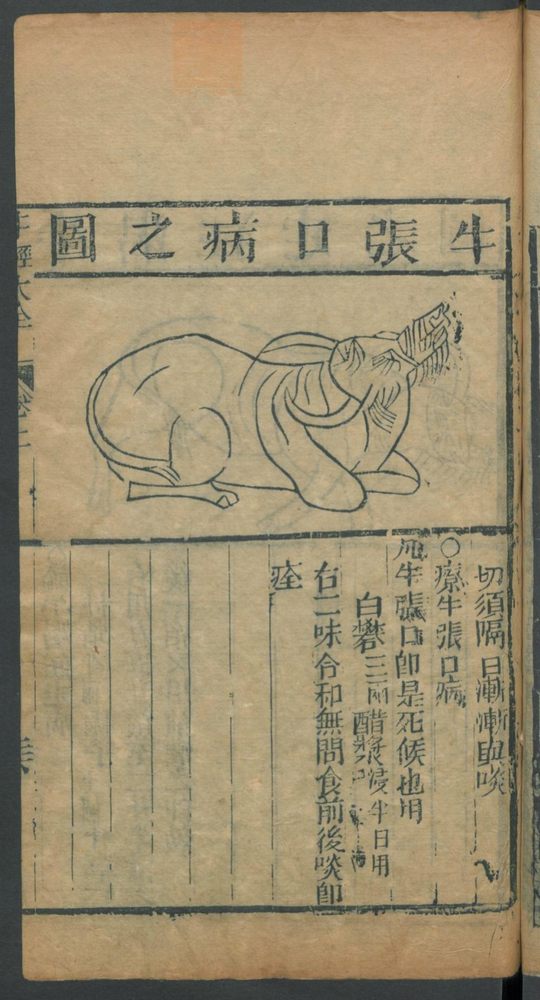 牛張口病之圖
切須隔日漸漸與啖
○療牛張口病
凡牛張口即是死候也用
白礬三兩 醋漿浸半日用
右二味令和無問食前後啖即
痊
牛經大全 卷上